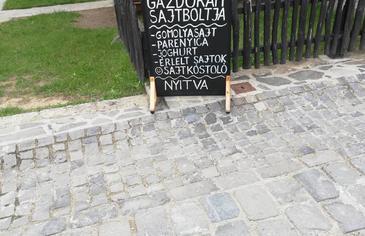 GAZDURAM
SAJTBOLTJA
-GOMOLYASAJT
-PARENYICA
-JOGHURT
-ÉRLELT SAJTOK
☺SAJTKÓSTOLÓ
NYITVA